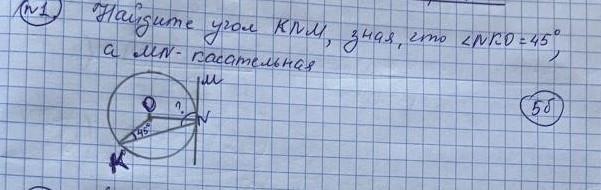 №1. Найдите угол KNM, зная, что ∠NKO=45°,
а MN-касательная
M
O
?
N
45°
K
5б